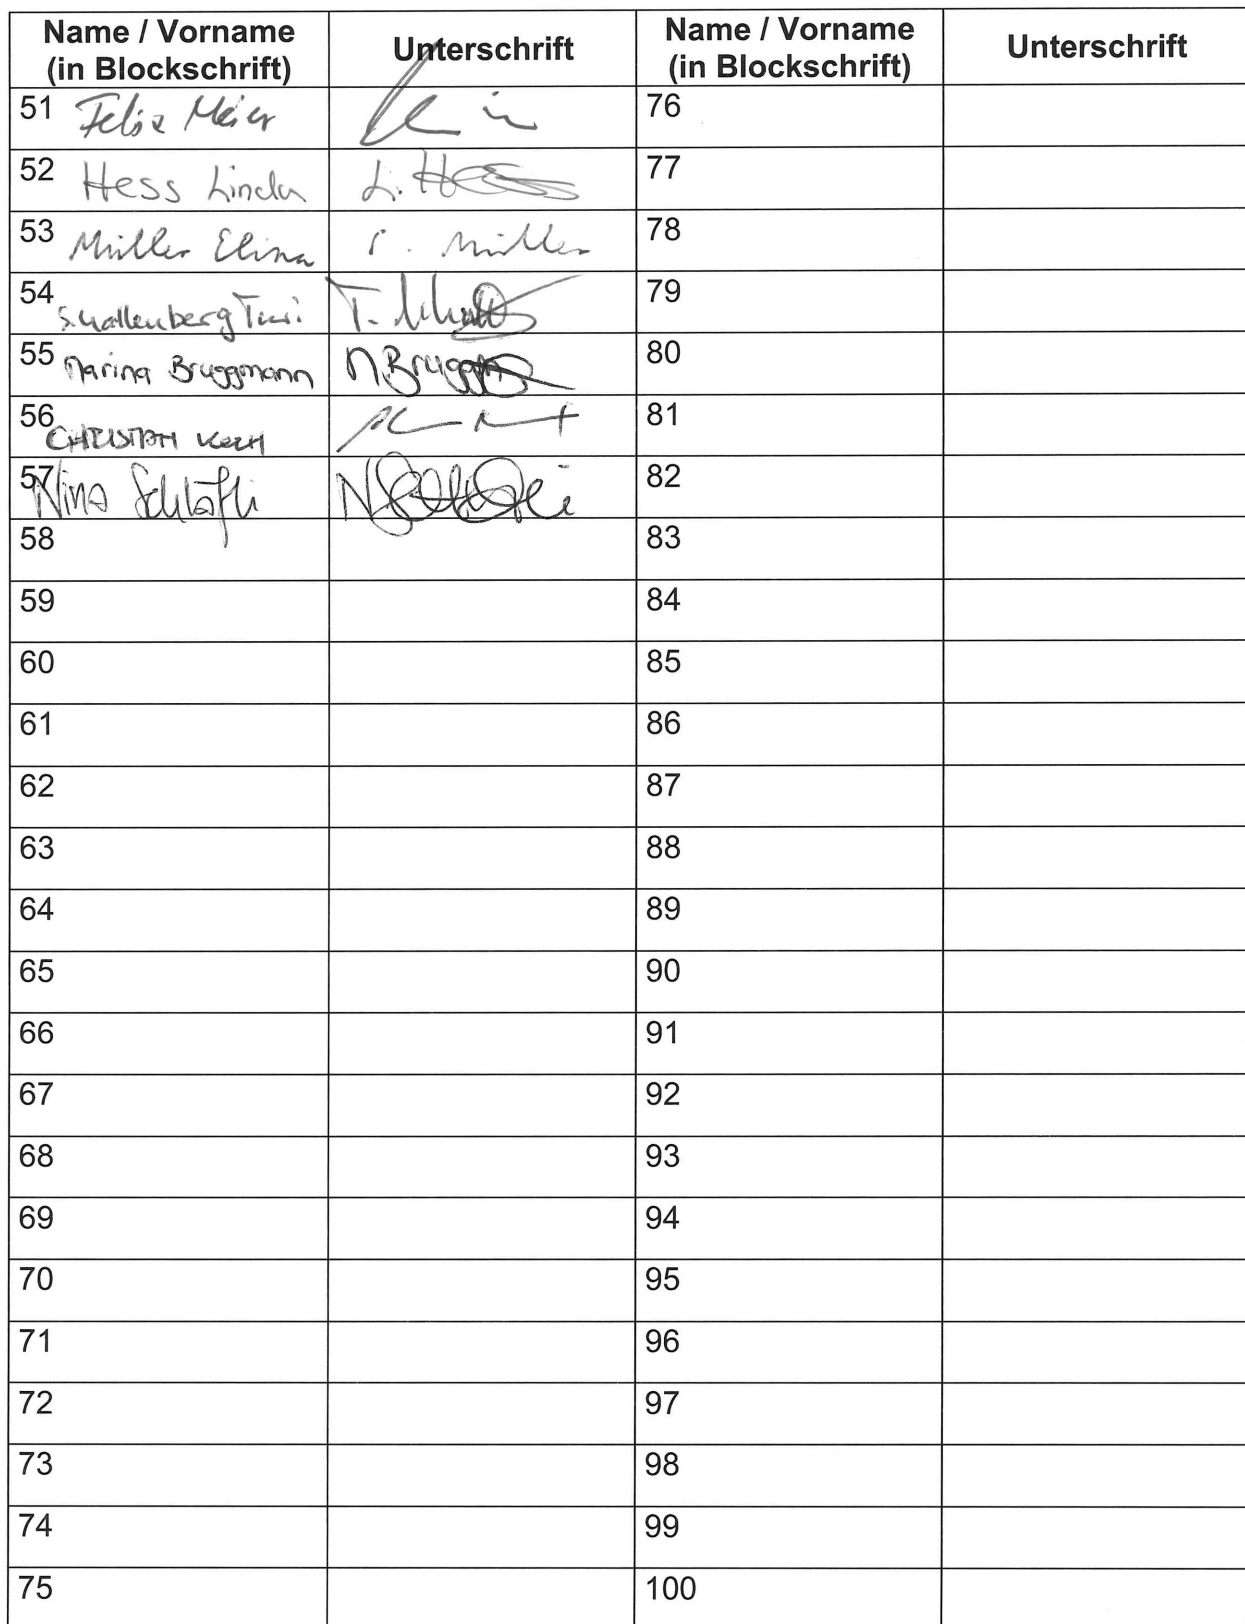 Name / Vorname
(in Blockschrift)
Unterschrift
Name / Vorname
(in Blockschrift)
Unterschrift
51 Felix Meier
76
52 Hess Linda L. Hess
77
53 Müller Elina E. Müller
78
54 Schallenberg Turi T.
79
55 Marina Bruggmann M. Brugg
80
56 CHRISTIAN KOCH
81
57 Nina Schläfli N Schläfli
82
58
83
59
84
60
85
61
86
62
87
63
88
64
89
65
90
66
91
67
92
68
93
69
94
70
95
71
96
72
97
73
98
74
99
75
100